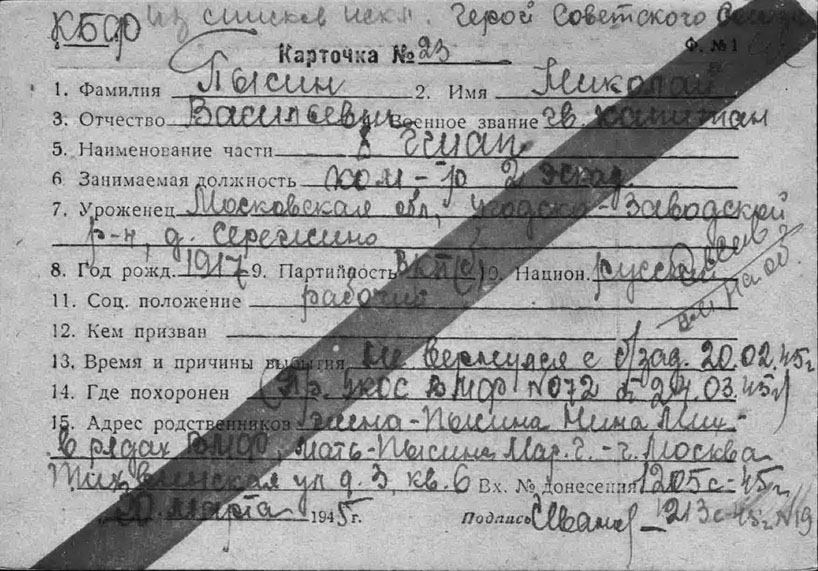 КБФ из списков искл. Герой Советского Союза
Карточка № 23 Ф. №1
1. Фамилия Пысин 2. Имя Николай
3. Отчество Васильевич Военное звание гв. капитан
5. Наименование части 8 гмап
6 Занимаемая должность ком-р 2 эскад.
7. Уроженец Московская обл, Угодско-Заводской
р-н, д. Сережкино
8. Год рожд. 1917 9. Партийность ВКП(б) 9. Национ. русский
11. Соц. положение рабочий
12. Кем призван
13, Время и причины выбытия Не вернулся с б/зад. 20.02.45г
14. Где похоронен (Пр. УКОС ВМФ №072 от 24.03.45г)
15. Адрес родственников жена-Пысина Нина Мих-
в рядах ВМФ, мать-Пысина Мар. г. Москва
Тихвинская ул д. 3, кв. 6 Вх. № донесения 1205с-45г
20 марта 1945г. Подпись 213с-45г №19